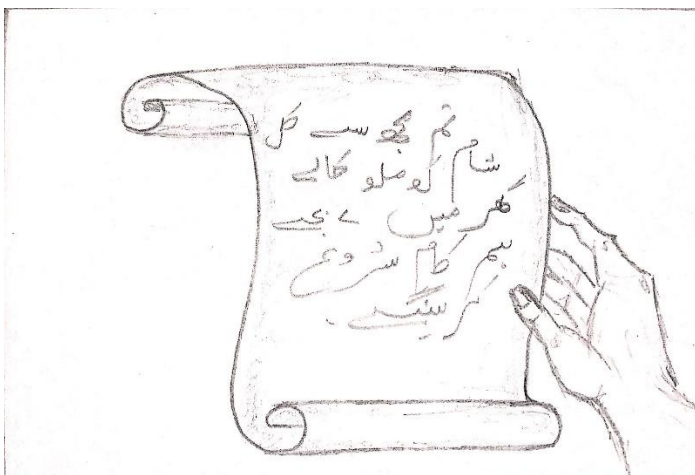 تم مجھ سے کل
شام کو ملو کالے
گھر میں ۷ بجے
ہم کام شروع
کرینگے۔